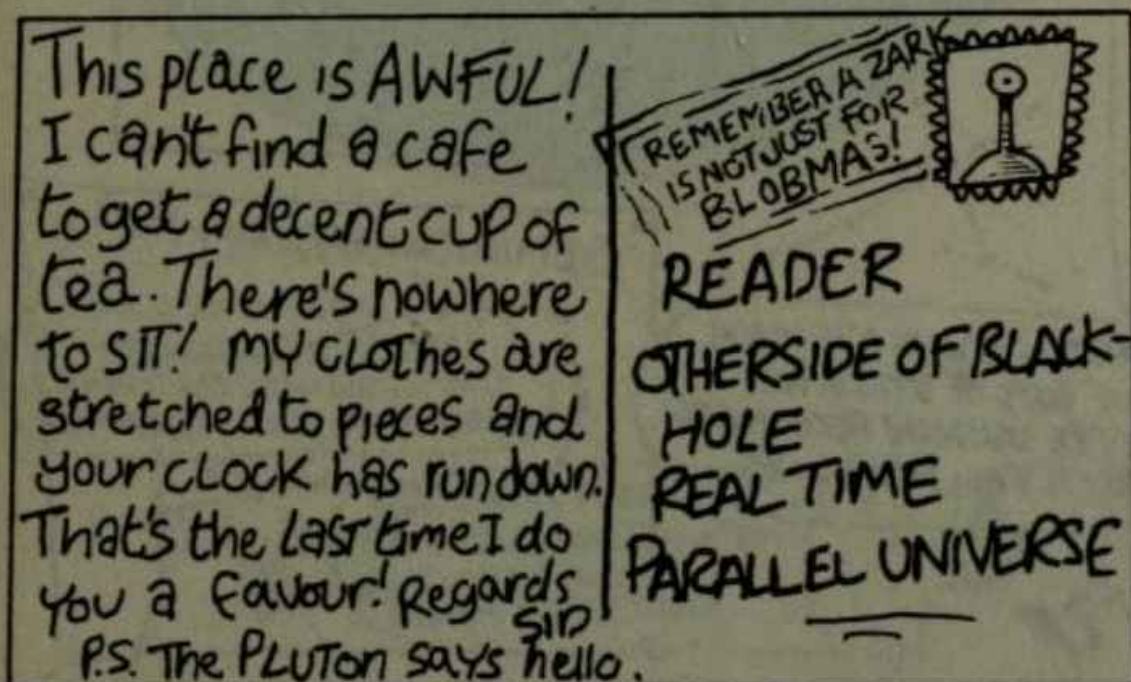 This place is AWFUL!
I can't find a cafe
to get a decent cup of
tea. There's nowhere
to SIT! MY CLOTHES are
stretched to pieces and
your CLOCK has run down.
That's the LAST time I do
you a favour! Regards
SID
P.S. The PLUTON says hello.
REMEMBER A ZARK
IS NOT JUST FOR
BLOBMAS!
READER
OTHERSIDE OF BLACK-
HOLE
REAL TIME
PARALLEL UNIVERSE